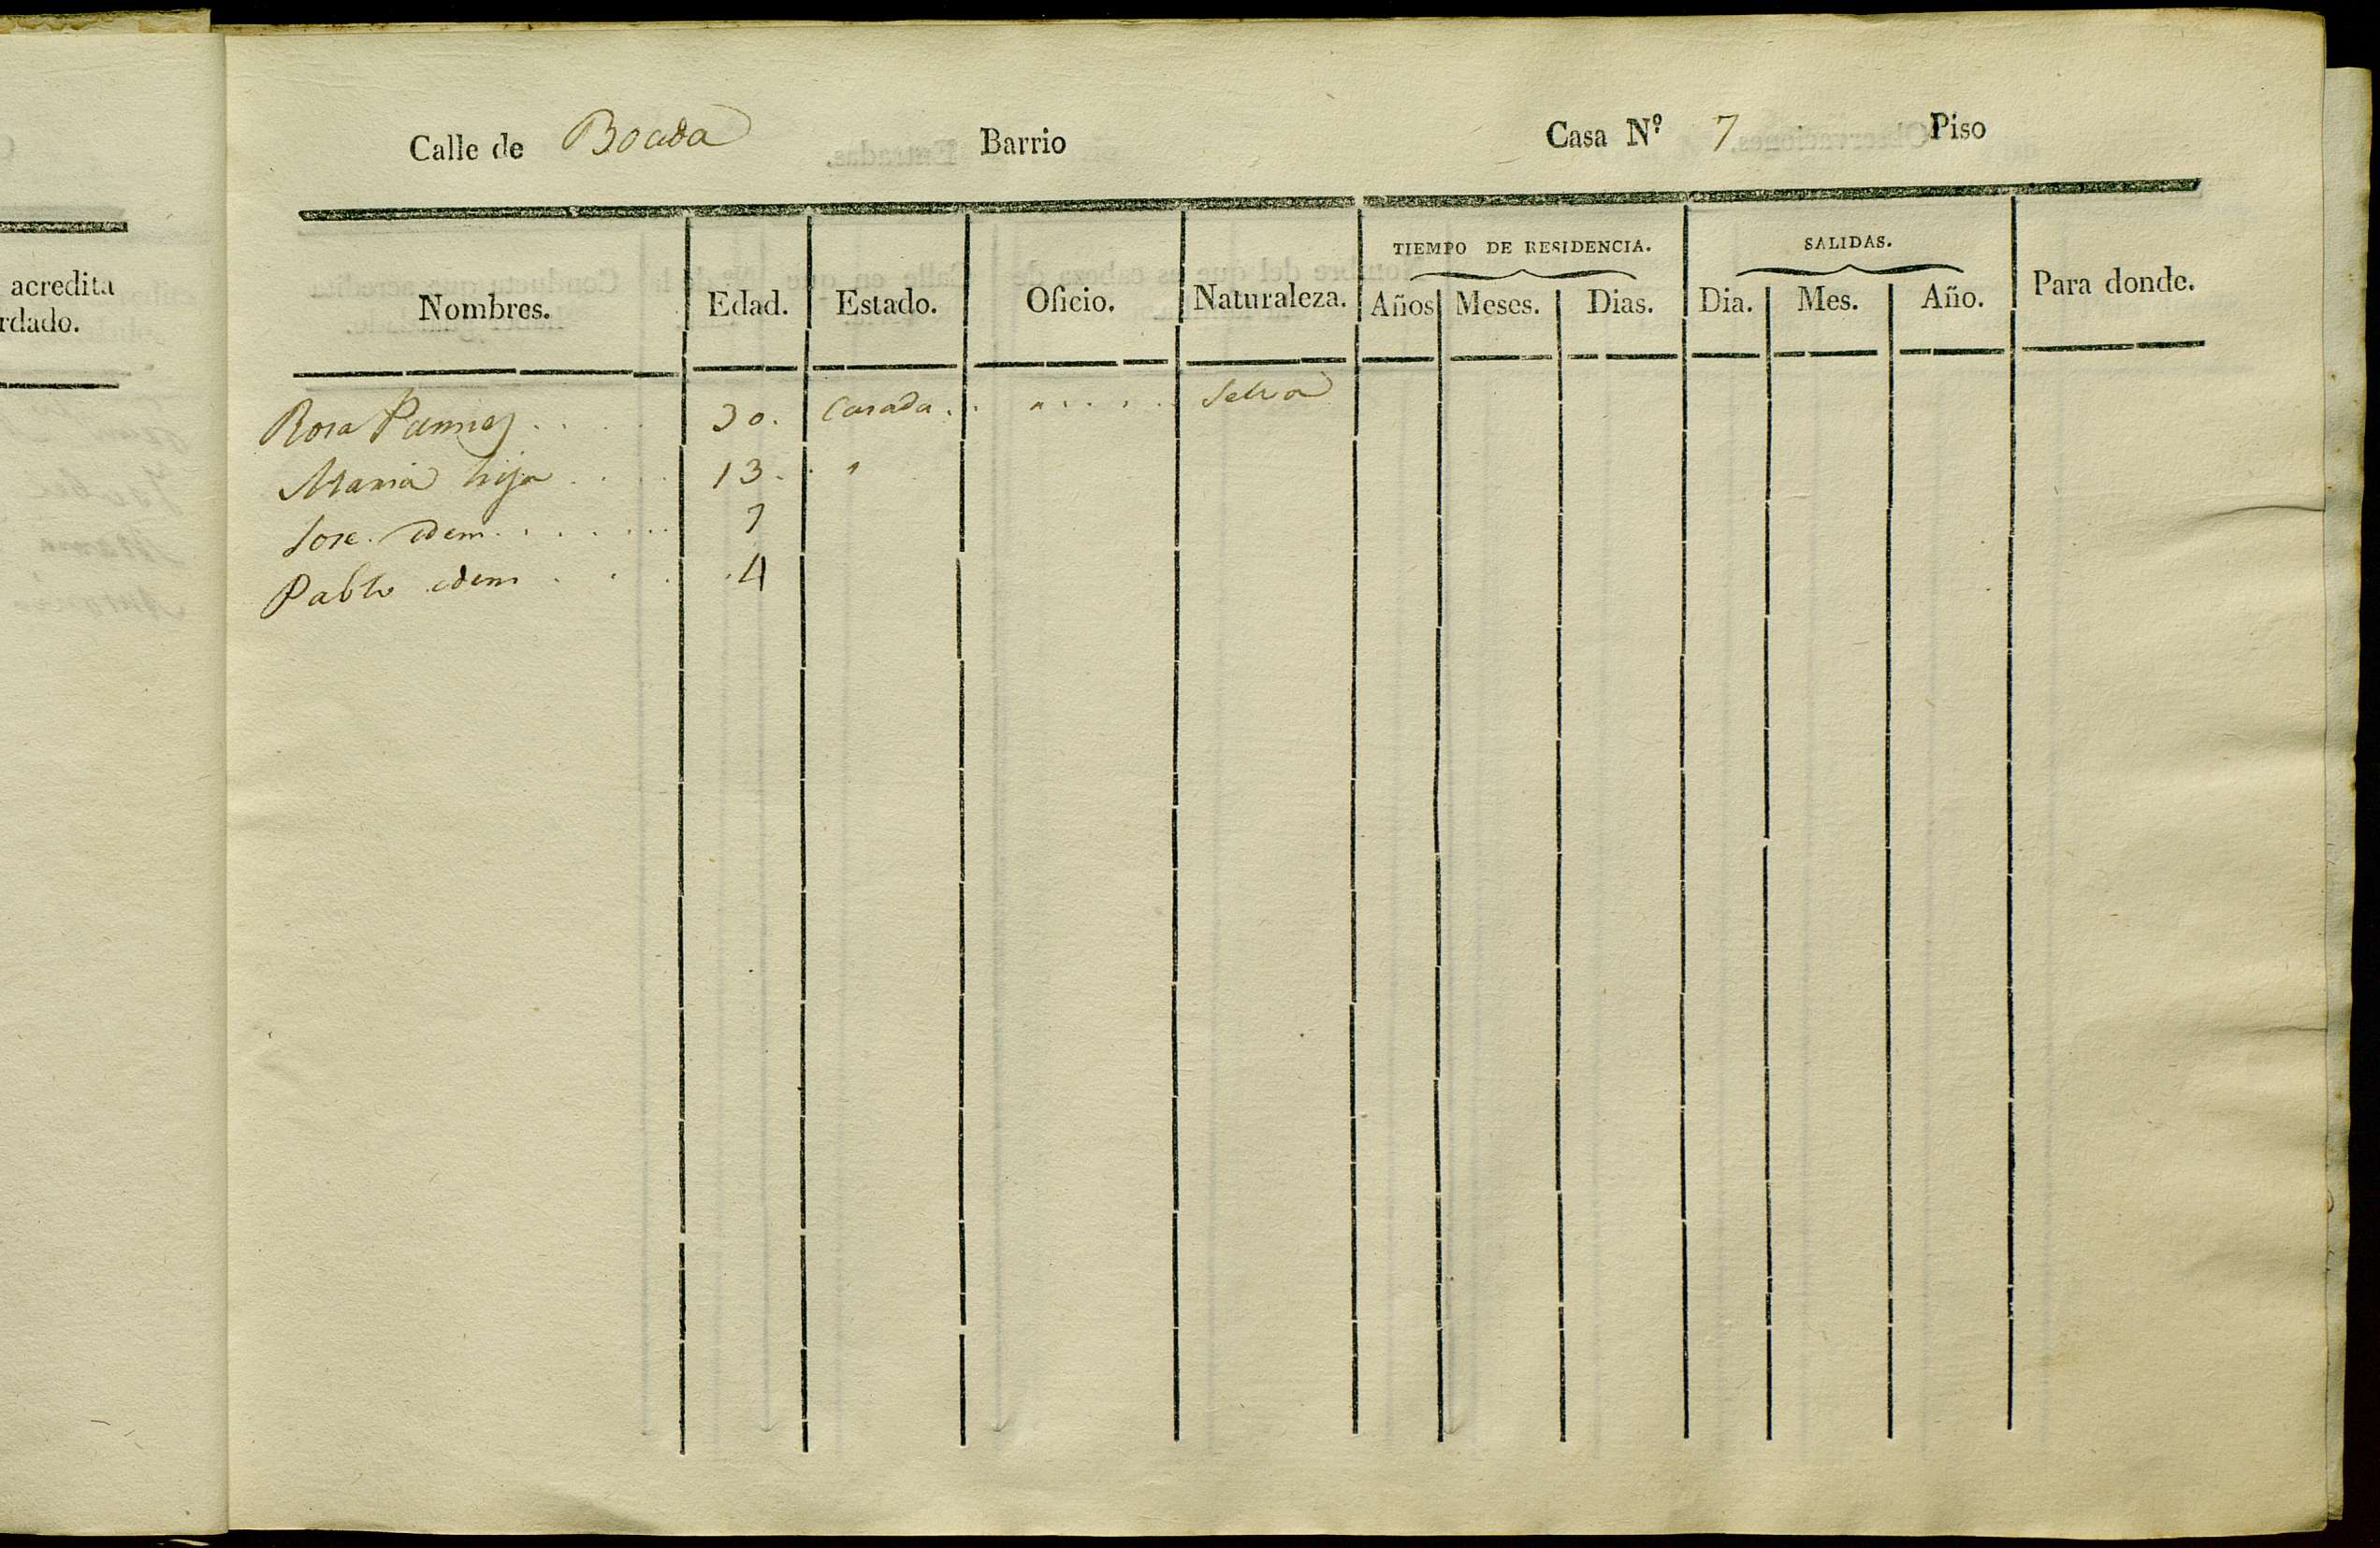 acredita
rdado.
Calle de Boada Barrio Casa Nº 7 Piso
TIEMPO DE RESIDENCIA. SALIDAS.
Nombres. Edad. Estado. Oficio. Naturaleza. Años Meses. Dias. Dia. Mes. Año. Para donde.
Rosa Pamies . . . . 30. Casada . . " . . . . Selva
Maria hija . . . . 13. . "
Jose. idem . . . . . . 7
Pablo idem . . . . 4